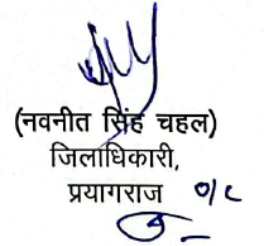 (नवनीत सिंह चहल)
जिलाधिकारी,
प्रयागराज o/c